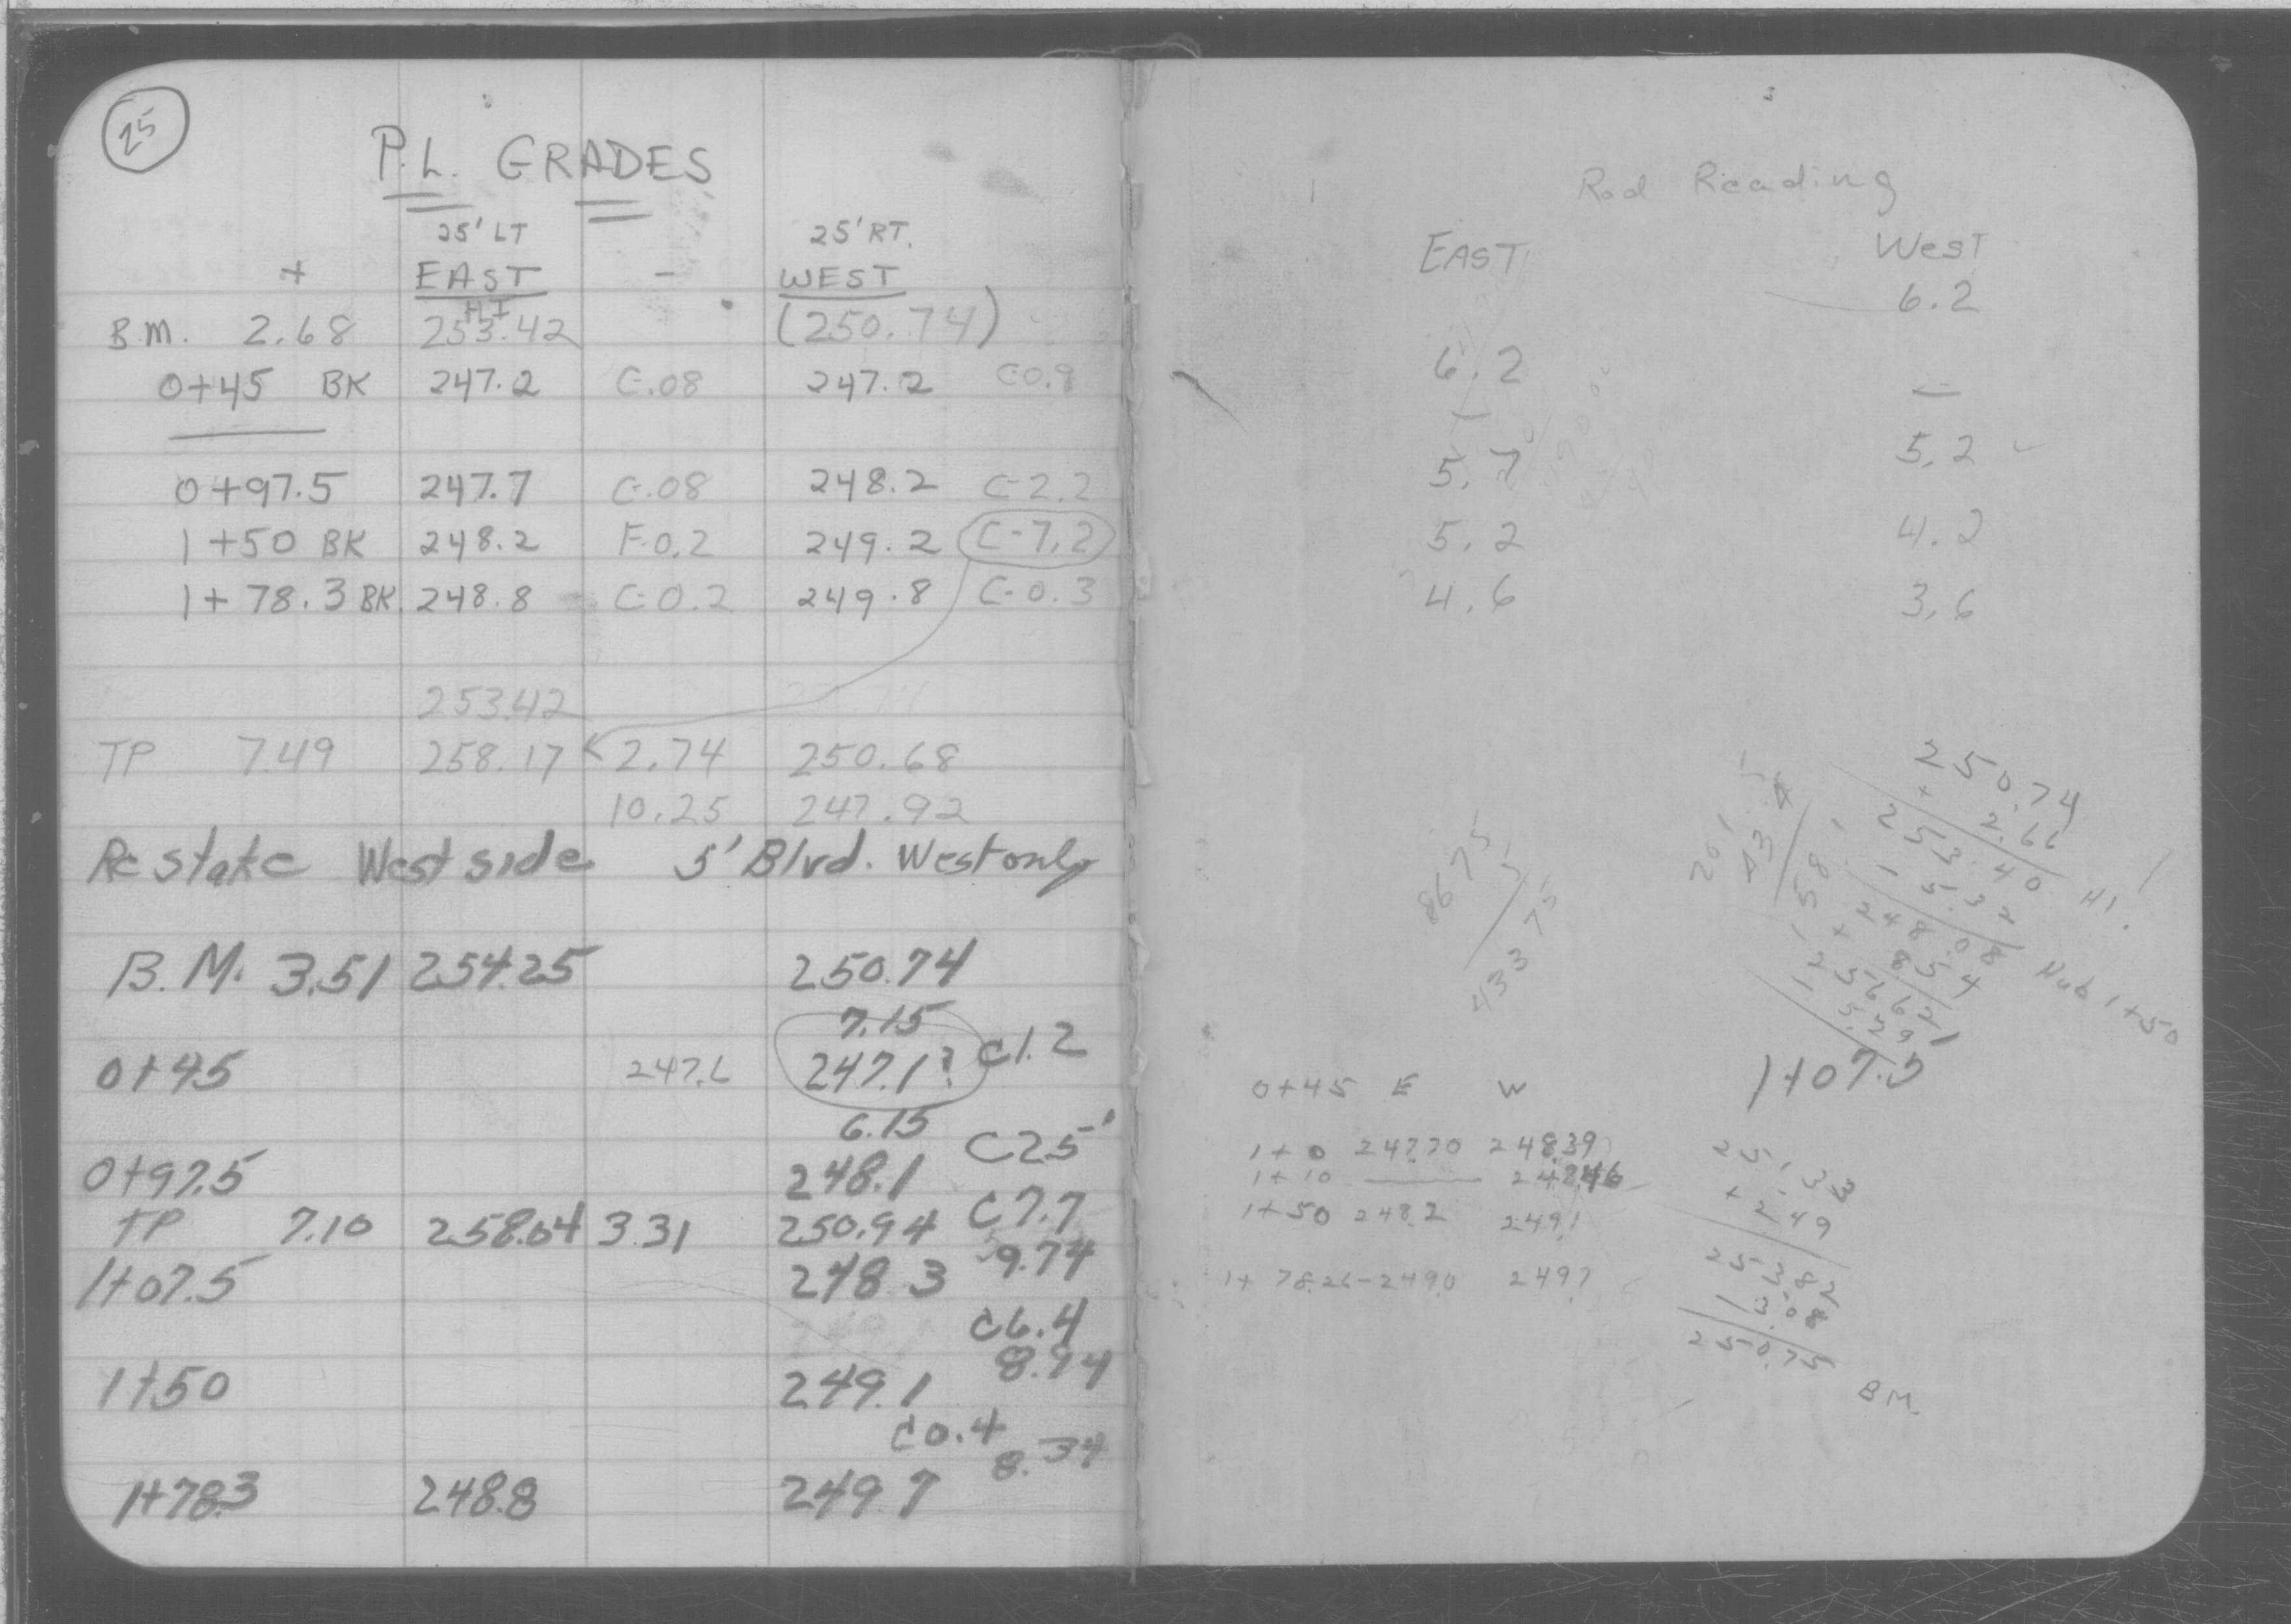 25
P.L. GRADES
25' LT 25' RT.
+ EAST - WEST
HI
B.M. 2.68 253.42 (250.74)
0+45 BK 247.2 C-.08 247.2 C-0.9
0+97.5 247.7 C-.08 248.2 C-2.2
1+50 BK 248.2 F-0.2 249.2 C-7.2
1+78.3 BK 248.8 C-0.2 249.8 C-0.3
253.42
TP 7.49 258.17 2.74 250.68
10.25 247.92
Re stake West side 5' Blvd. West only
B.M. 3.51 254.25 250.74
7.15
0+45 247.6 247.1? C1.2
6.15
0+97.5 248.1 C2.5'
TP 7.10 258.04 3.31 250.94 C7.7
9.74
1+07.5 248.3
C6.4
8.94
1+50 249.1
C0.4
8.34
1+78.3 248.8 249.7
Rod Reading
EAST West
6.2
6.2 —
—
5.7 5.2
5.2 4.2
4.6 3.6
250.74
+ 2.66
253.40 HI.
5.32
248.08 Hub 1+50
1+07.5
8675
5
43375
0+45 E W
1+0 247.70 248.39
1+10 —— 248.46
1+50 248.2 249.1
1+78.26 - 249.0 249.7
251.33
+ 2.49
253.82
3.08
250.75
B M.